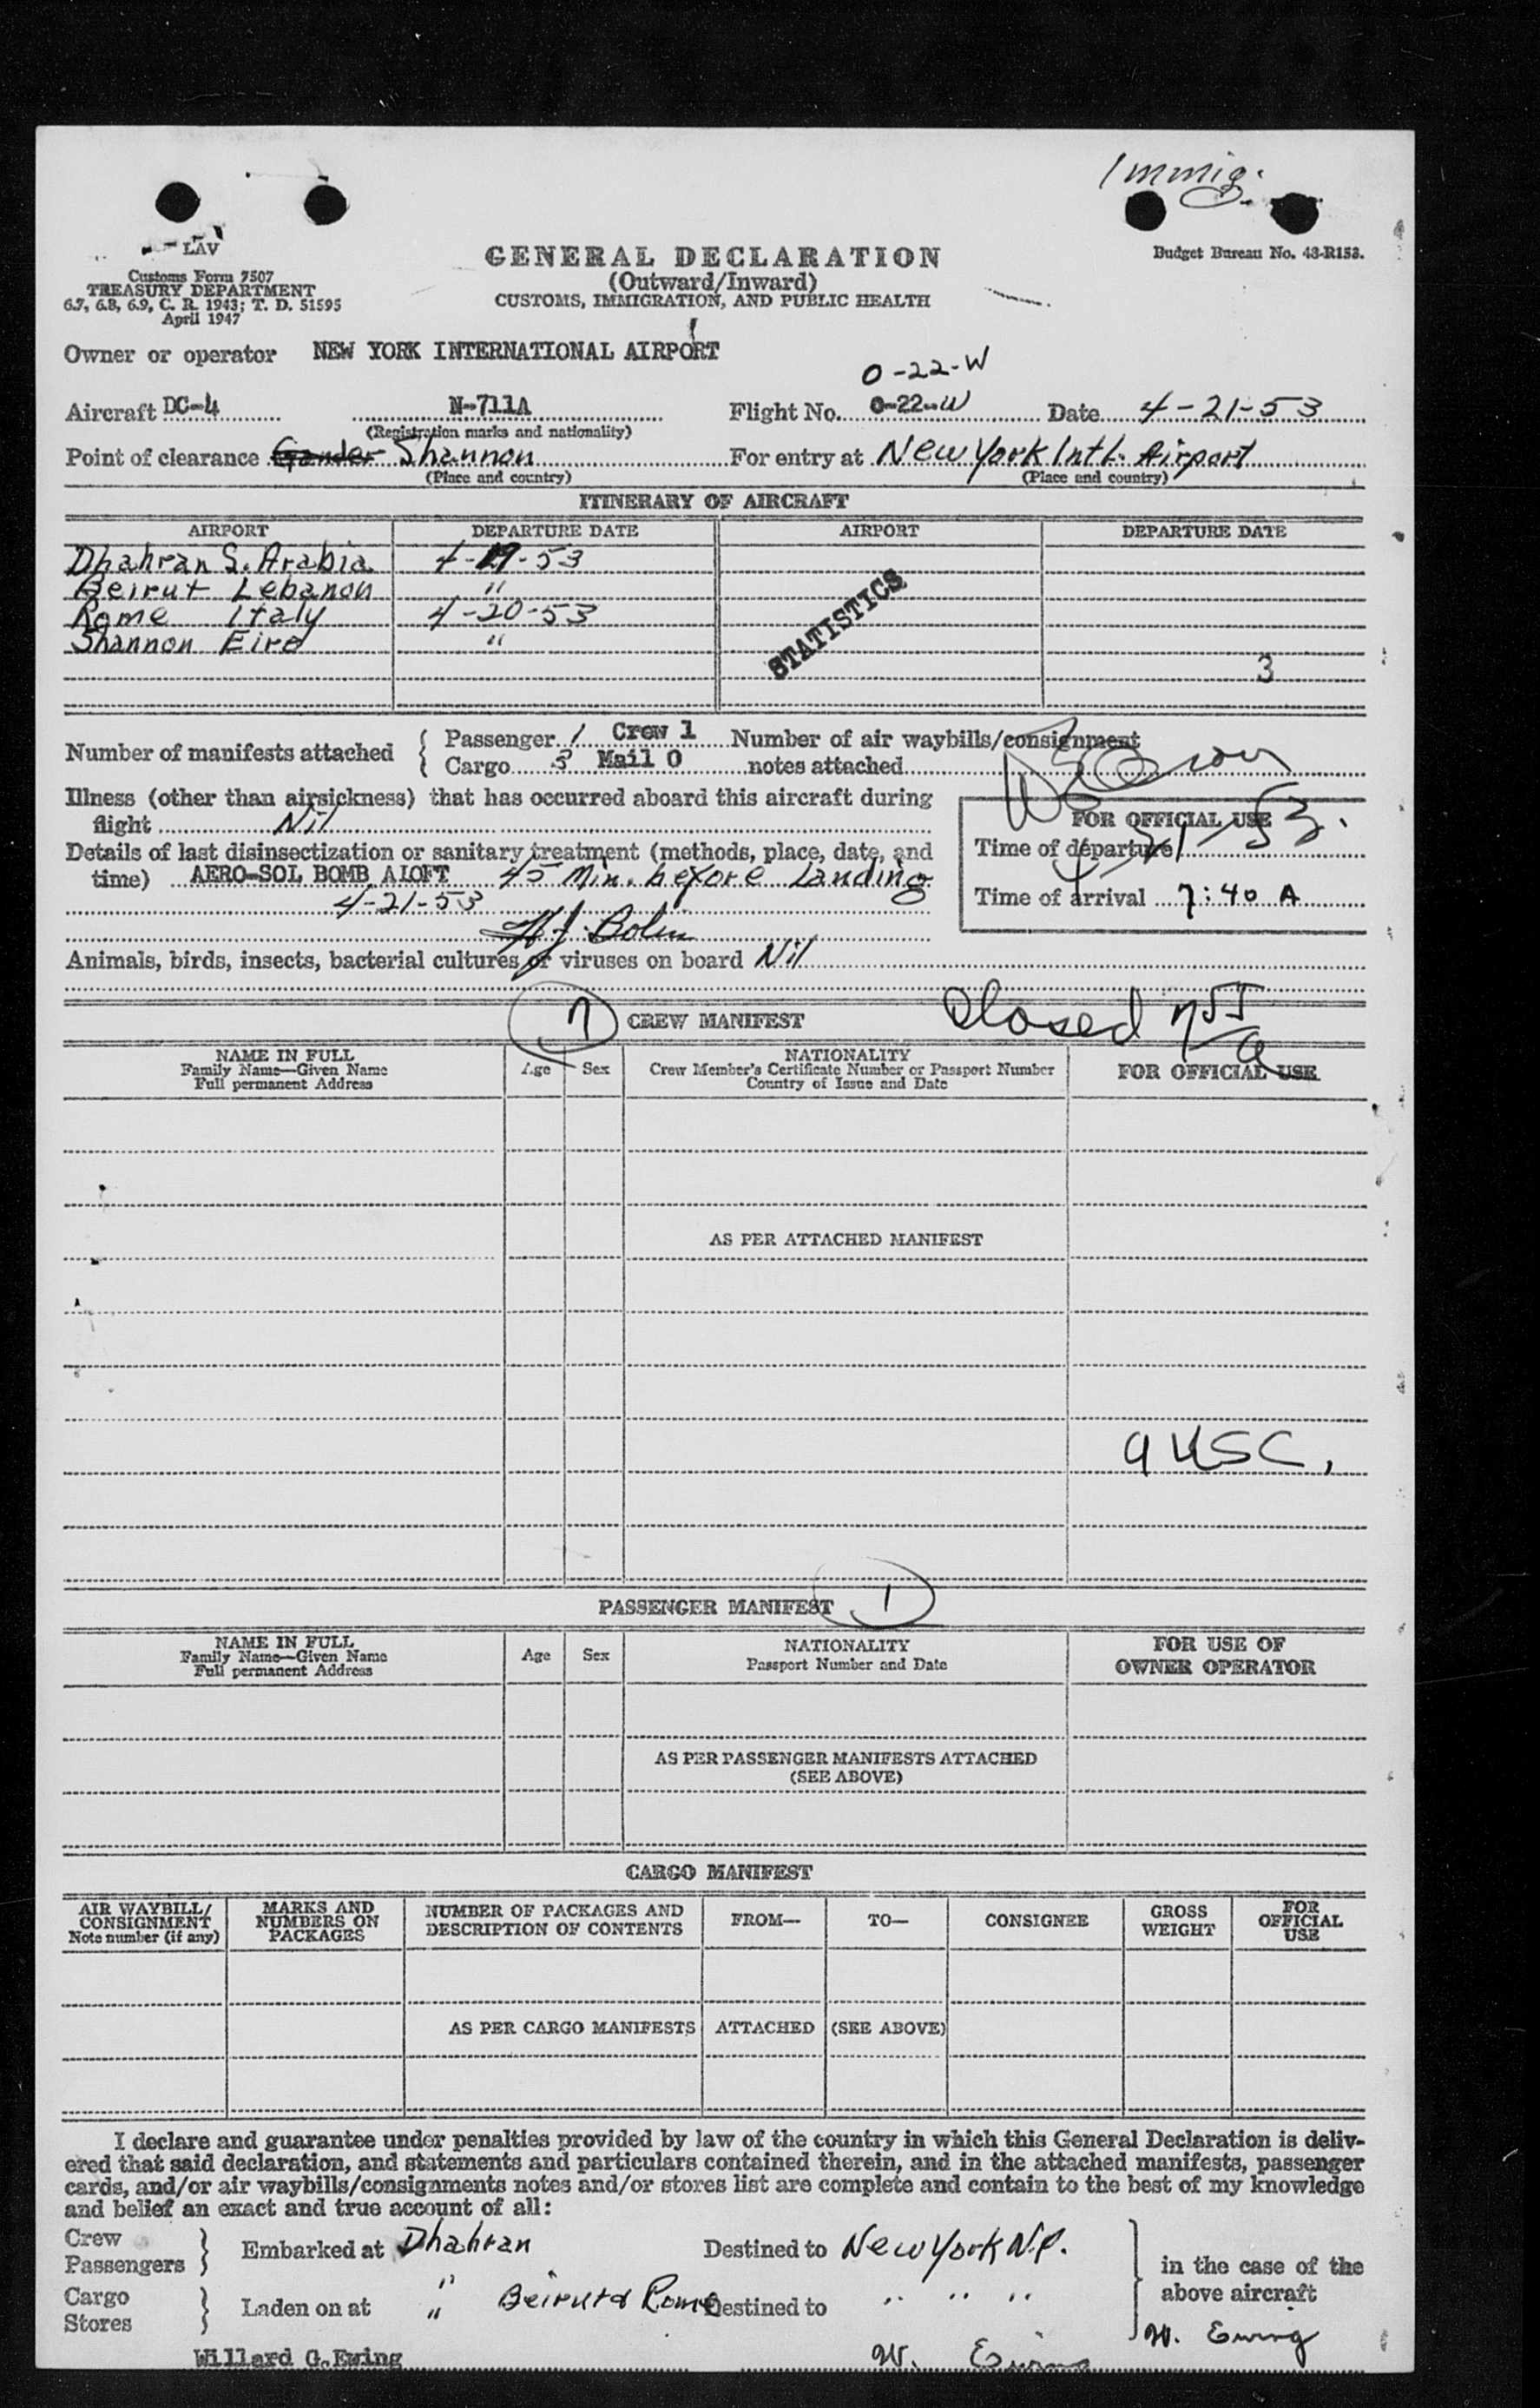 Immig.
LAV
Customs Form 7507
TREASURY DEPARTMENT
6.7, 6.8, 6.9, C. R. 1943; T. D. 51595
April 1947
GENERAL DECLARATION
(Outward/Inward)
CUSTOMS, IMMIGRATION, AND PUBLIC HEALTH
Budget Bureau No. 43-R153.
Owner or operator NEW YORK INTERNATIONAL AIRPORT
O-22-W
Aircraft DC-4 N-711A Flight No. O-22-W Date 4-21-53
(Registration marks and nationality)
Point of clearance Gander Shannon For entry at New York Intl. Airport
(Place and country) (Place and country)
ITINERARY OF AIRCRAFT
AIRPORT DEPARTURE DATE AIRPORT DEPARTURE DATE
Dhahran S. Arabia 4-19-53
Beirut Lebanon "
Rome Italy 4-20-53
Shannon Eire "
STATISTICS
3
Number of manifests attached { Passenger 1 Crew 1 Number of air waybills/consignment
Cargo 3 Mail 0 notes attached
Illness (other than airsickness) that has occurred aboard this aircraft during
flight Nil
FOR OFFICIAL USE
Time of departure
4-21-53.
Time of arrival 7:40 A
Details of last disinsectization or sanitary treatment (methods, place, date, and
time) AERO-SOL BOMB ALOFT 45 Min. before landing
4-21-53
Animals, birds, insects, bacterial cultures or viruses on board Nil
Closed 755
a
7 CREW MANIFEST
NAME IN FULL
Family Name—Given Name
Full permanent Address
Age Sex
NATIONALITY
Crew Member's Certificate Number or Passport Number
Country of Issue and Date
FOR OFFICIAL USE
AS PER ATTACHED MANIFEST
USC,
PASSENGER MANIFEST 1
NAME IN FULL
Family Name—Given Name
Full permanent Address
Age Sex
NATIONALITY
Passport Number and Date
FOR USE OF
OWNER OPERATOR
AS PER PASSENGER MANIFESTS ATTACHED
(SEE ABOVE)
CARGO MANIFEST
AIR WAYBILL/
CONSIGNMENT
Note number (if any)
MARKS AND
NUMBERS ON
PACKAGES
NUMBER OF PACKAGES AND
DESCRIPTION OF CONTENTS
FROM—
TO—
CONSIGNEE
GROSS
WEIGHT
FOR
OFFICIAL
USE
AS PER CARGO MANIFESTS ATTACHED (SEE ABOVE)
I declare and guarantee under penalties provided by law of the country in which this General Declaration is deliv-
ered that said declaration, and statements and particulars contained therein, and in the attached manifests, passenger
cards, and/or air waybills/consignments notes and/or stores list are complete and contain to the best of my knowledge
and belief an exact and true account of all:
Crew
Passengers } Embarked at Dhahran Destined to New York N.Y. in the case of the
above aircraft
Cargo
Stores } Laden on at " " Beirut & Rome Destined to " " "
W. Ewing
Willard G. Ewing W. Ewing